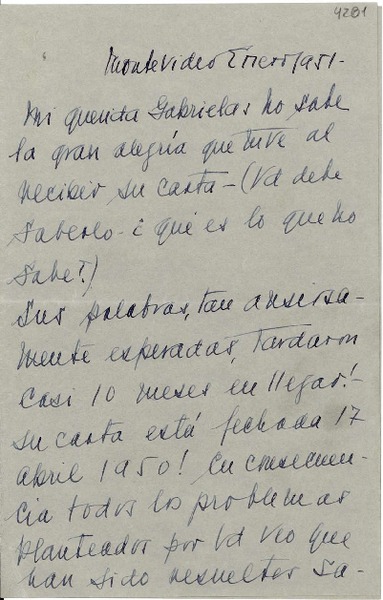 4281
Montevideo Enero 1951-
Mi querida Gabriela: No sabe
la gran alegría que tuve al
recibir su carta - (Vd debe
saberlo - ¿ qué es lo que no
sabe?)
Sus palabras, tan ansiosa-
mente esperadas, tardaron
casi 10 meses en llegar! -
Su carta está fechada 17
abril 1950! En consecuen-
cia todos los problemas
planteados por Vd veo que
han sido resueltos sa-